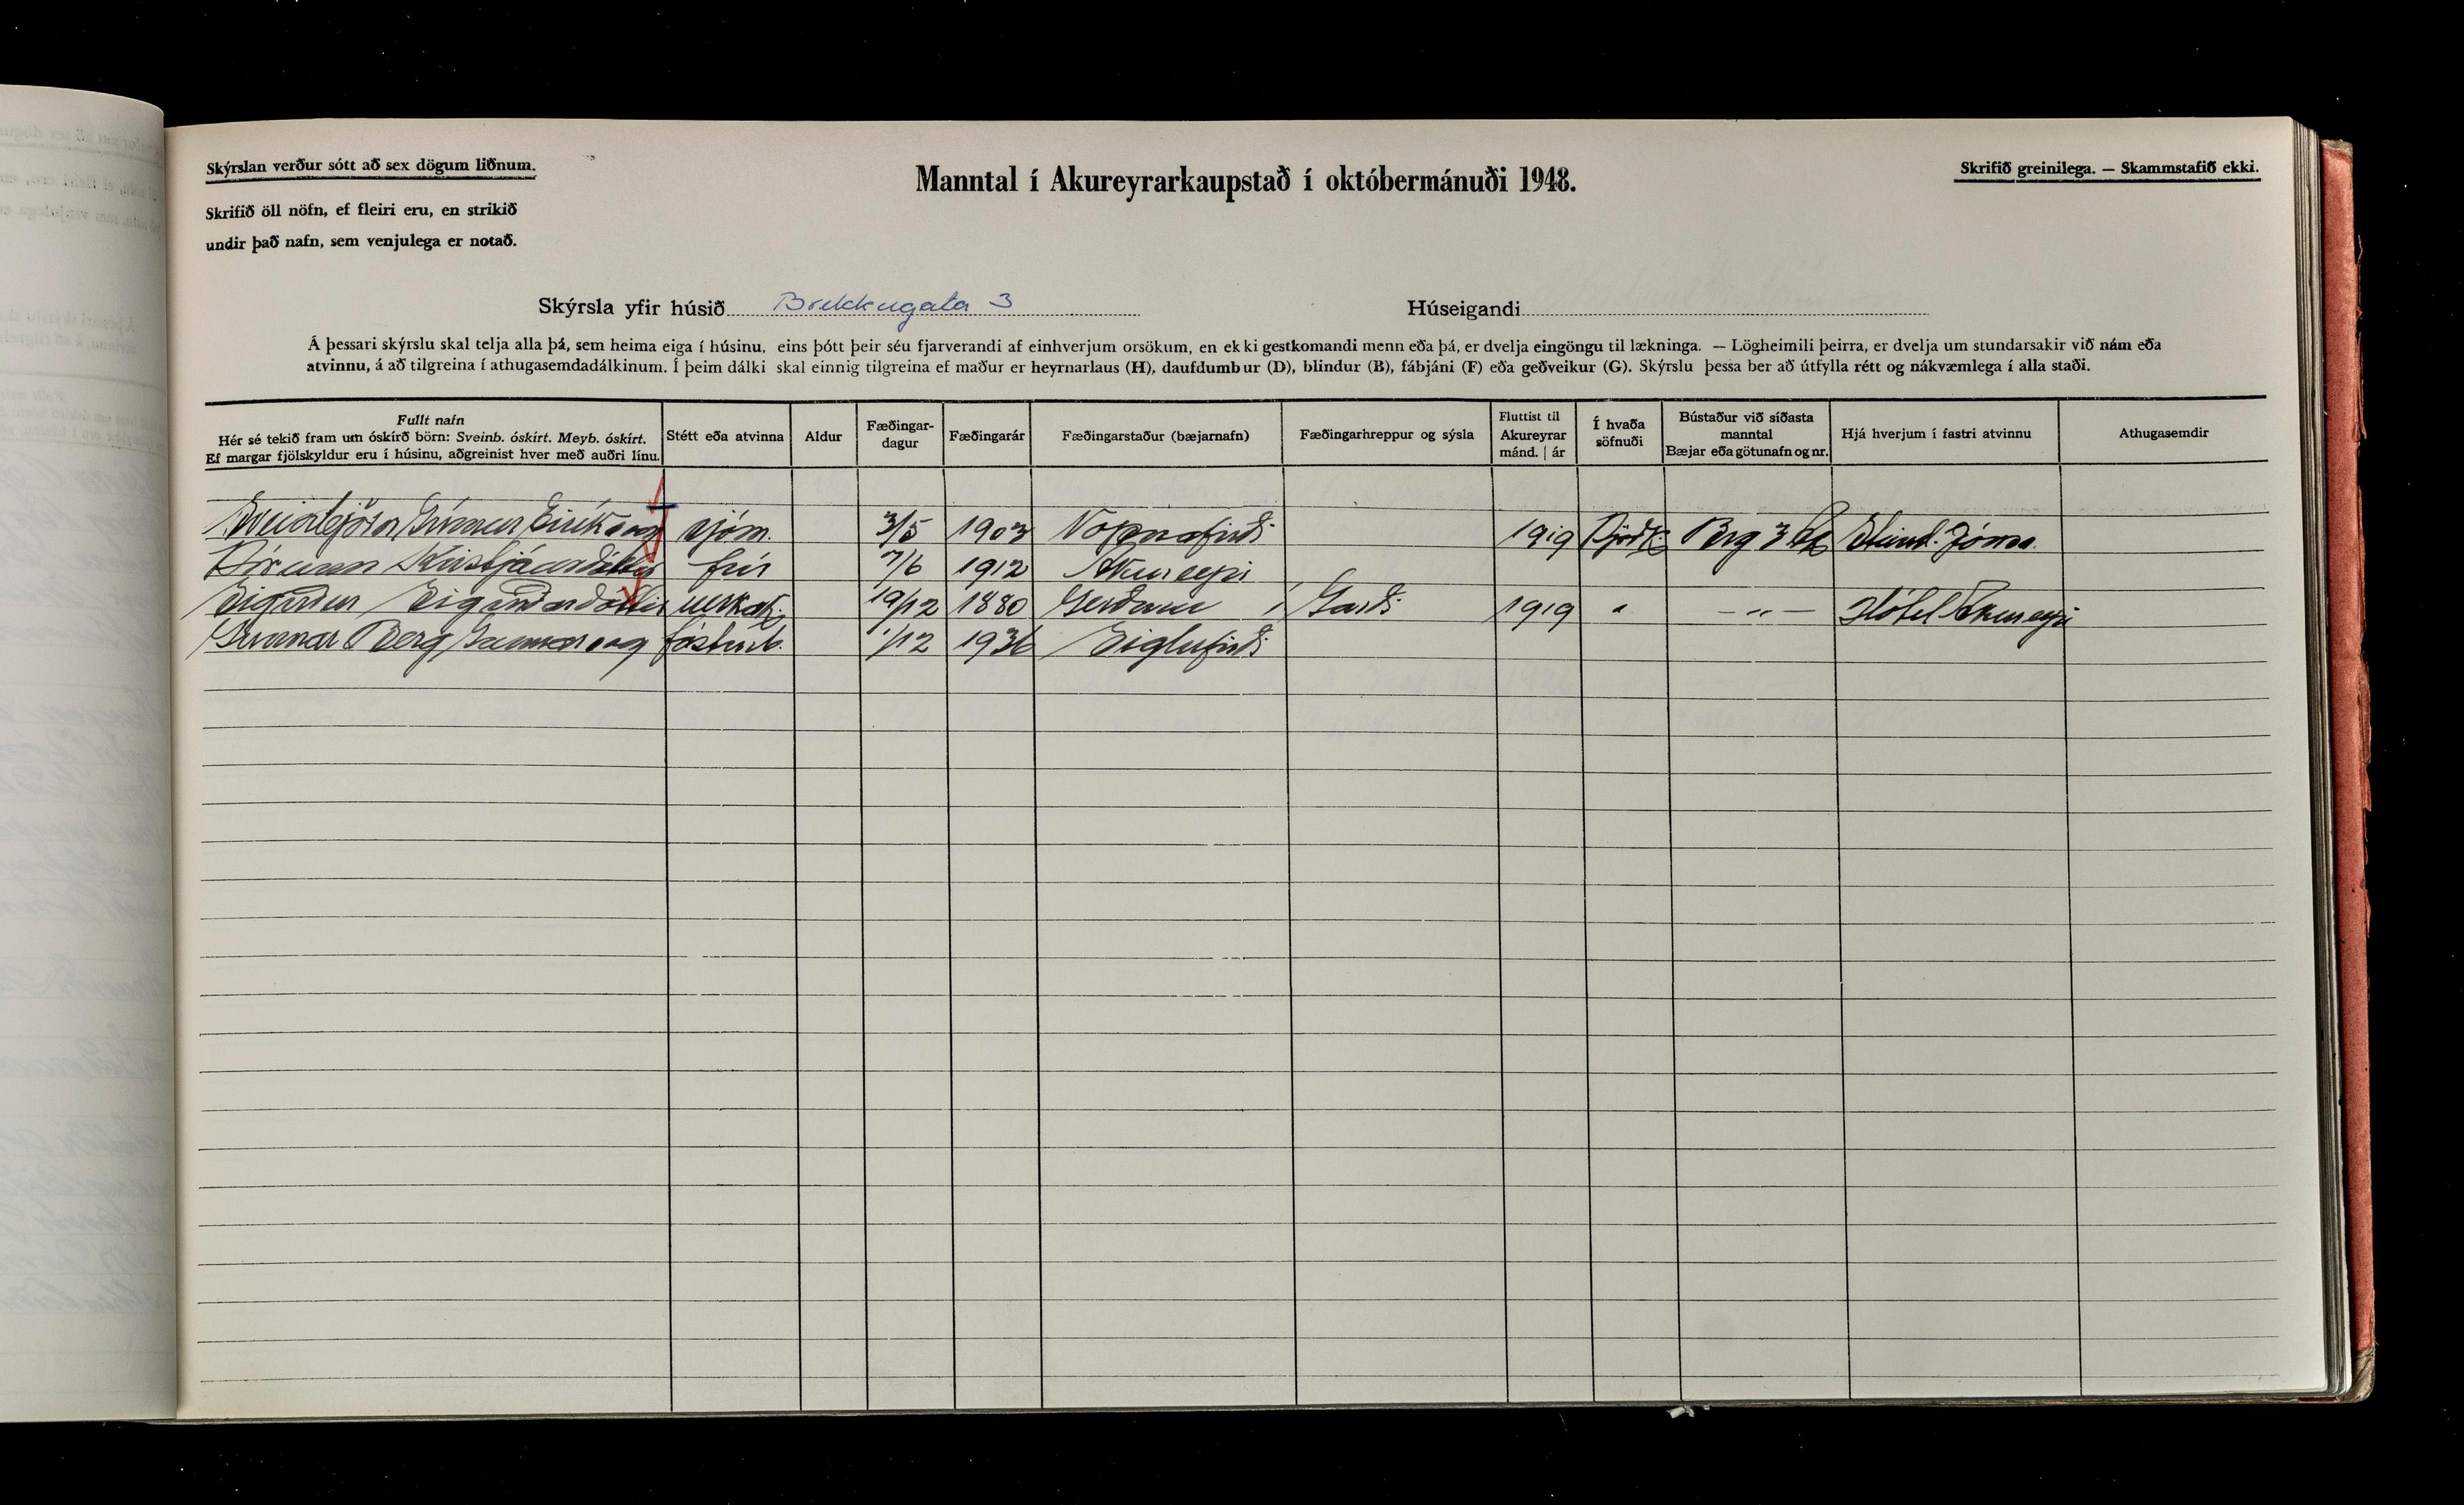 Skýrslan verður sótt að sex dögum liðnum.
Manntal í Akureyrarkaupstað í októbermánuði 1948.
Skrifið greinilega. — Skammstafið ekki.
Skrifið öll nöfn, ef fleiri eru, en strikið
undir það nafn, sem venjulega er notað.
Skýrsla yfir húsið Brekkugata 3 Húseigandi
Á þessari skýrslu skal telja alla þá, sem heima eiga í húsinu, eins þótt þeir séu fjarverandi af einhverjum orsökum, en ekki gestkomandi menn eða þá, er dvelja eingöngu til lækninga. — Lögheimili þeirra, er dvelja um stundarsakir við nám eða
atvinnu, á að tilgreina í athugasemdadálkinum. Í þeim dálki skal einnig tilgreina ef maður er heyrnarlaus (H), daufdumbur (D), blindur (B), fábjáni (F) eða geðveikur (G). Skýrslu þessa ber að útfylla rétt og nákvæmlega í alla staði.
Fullt nafn
Hér sé tekið fram um óskírð börn: Sveinb. óskírt. Meyb. óskírt.
Ef margar fjölskyldur eru í húsinu, aðgreinist hver með auðri línu.
Stétt eða atvinna
Aldur
Fæðingar-
dagur
Fæðingarár
Fæðingarstaður (bæjarnafn)
Fæðingarhreppur og sýsla
Fluttist til
Akureyrar
mánd. | ár
Í hvaða
söfnuði
Bústaður við síðasta
manntal
Bæjar eða götunafn og nr.
Hjá hverjum í fastri atvinnu
Athugasemdir
Sveinbjörn Gunnar Eiríksson sjóm. 3/5 1903 Vopnafirði 1919 Þjóðk. 
Þórunn Kristjánsdóttir frú 7/6 1912 Akureyri
Sigríður Sigurðardóttir verkak. 19/12 1880 Gerðum í Garði 1919 " —"— Hótel Akureyri
Gunnar Berg Gunnarsson fósturb. 1/12 1936 Siglufirði